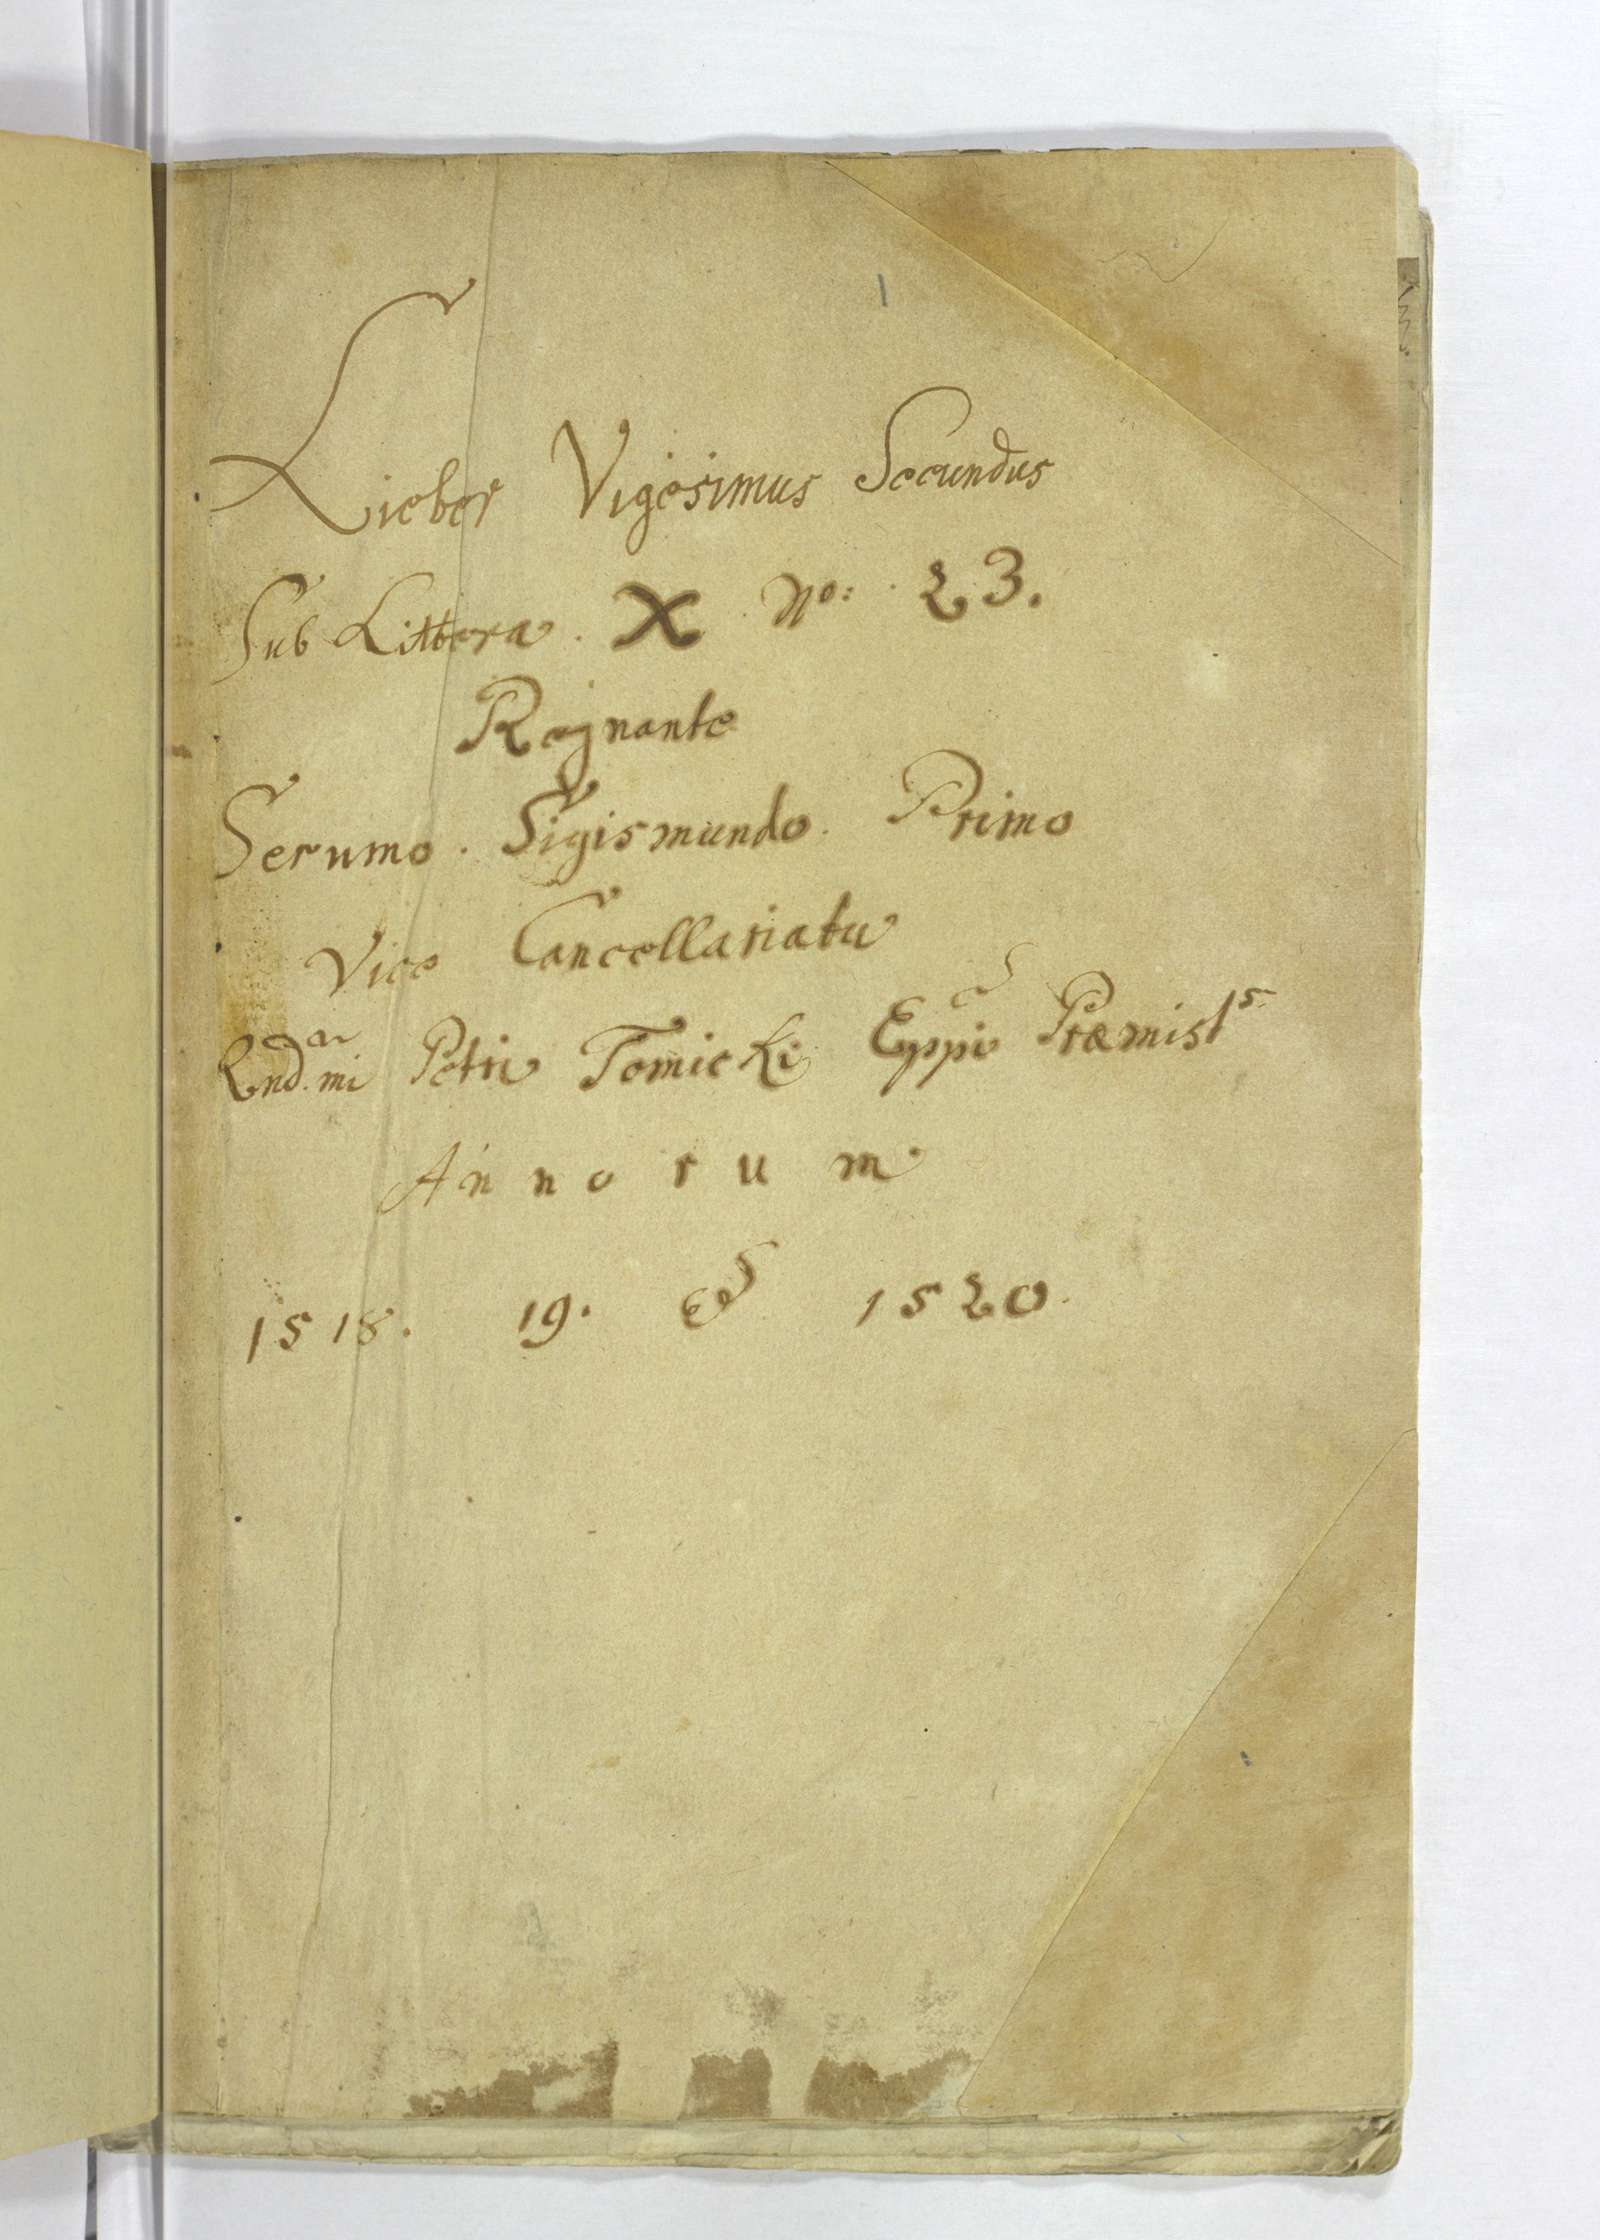 Lieber Vigesimus Secundus
Sub Littera. X. No: 23.
Regnante
Serumo. Sigismundo. Primo
Vice Cancellariatu
Rnd.mi Petri Tomicki Eppi Præmisl s
Annorum.
1518. 19. & 1520.